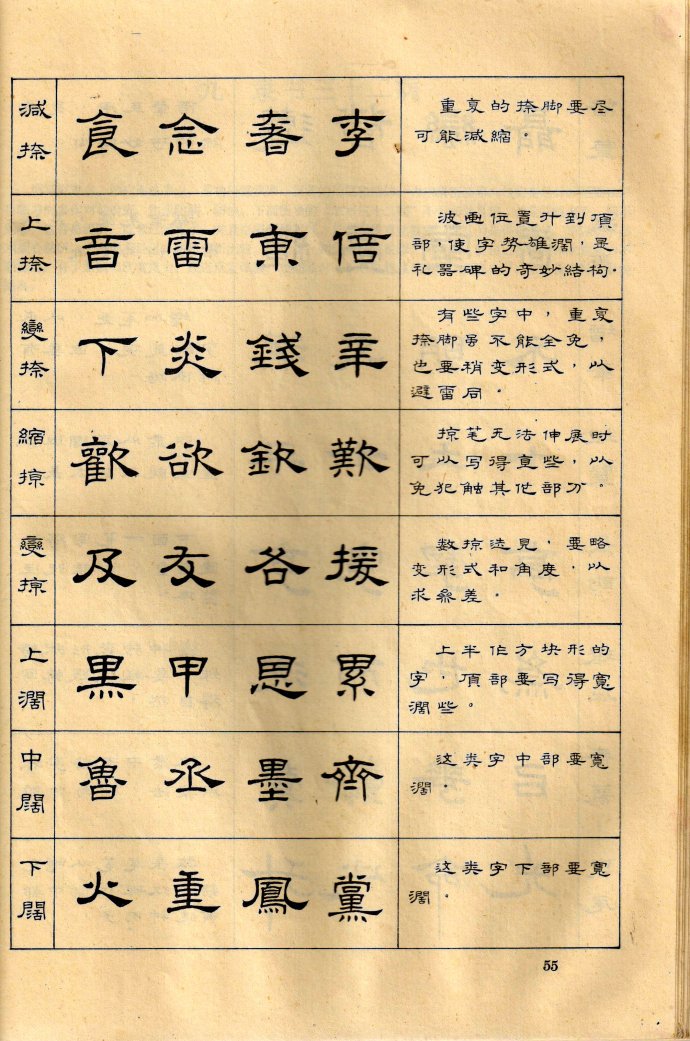 減捺
食念李
重复的捺脚要尽
可能減縮。
上捺
音雷東倍
波画位置升到頂
部,使字势雄濶,是
礼器碑的奇妙結构.
變捺
下炎錢辛
有些字中,重复,
捺脚虽不能全免,
也要稍变形式,以
避雷同.
縮掠
歡欲欽歎
掠笔无法伸展,时
可以写得直些,以
免犯触其他部分。
變掠
及友各援
数掠迭見,要略
变形式和角度,以
求參差.
上濶
黑甲恩累
上半作方块形的
字,頂部要写得寬
濶些。
中闊
魯丞墨齊
这类字中部要寬
濶.
下闊
火重鳳黨
这类字下部要寬
濶.
55